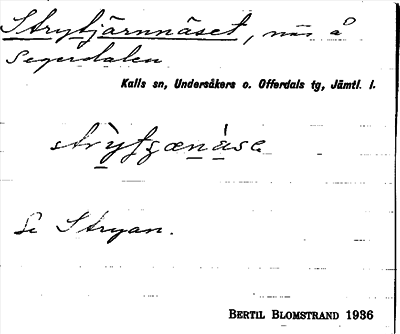 Strytjärnnäset, näs å
Segerdalen
Kalls sn, Undersåkers o. Offerdals tg, Jämtl. l.
Se Stryan.
BERTIL BLOMSTRAND 1936